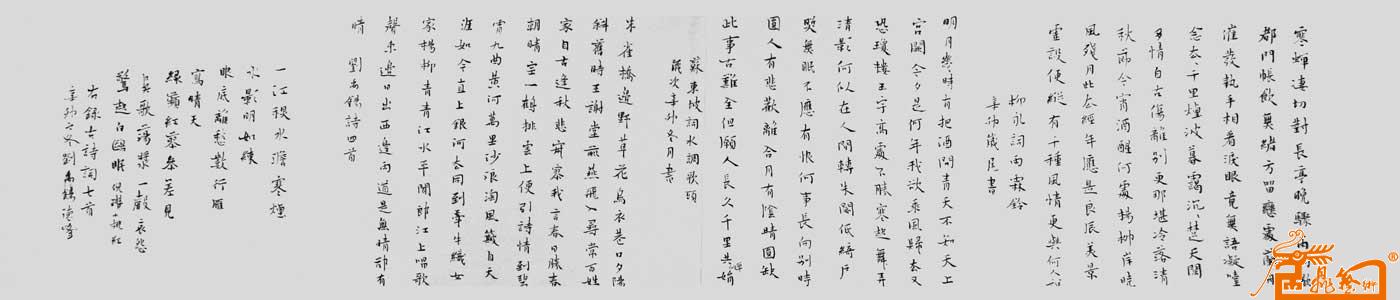 寒蝉凄切對長亭晚驟雨初歇
都門帳飲無緒方留戀處蘭舟
催發執手相看淚眼竟無語凝噎
念去去千里煙波暮靄沉沉楚天闊
多情自古傷離別更那堪冷落清
秋節今宵酒醒何處楊柳岸曉
風殘月此去經年應是良辰美景
虛設便縱有千種風情更與何人說
柳永詞雨霖鈴
辛卯歲尾書
明月幾時有把酒問青天不知天上
宮闕今夕是何年我欲乘風歸去又
恐瓊樓玉宇高處不勝寒起舞弄
清影何似在人間轉朱閣低綺戶
照無眠不應有恨何事長向別時
圓人有悲歡離合月有陰晴圓缺
此事古難全但願人長久千里共嬋娟
蘇東坡詞水調歌頭
歲次辛卯冬月書
朱雀橋邊野草花烏衣巷口夕陽
斜舊時王謝堂前燕飛入尋常百姓
家自古逢秋悲寂寥我言春日勝春
朝晴空一鶴排雲上便引詩情到碧
霄九曲黃河萬里沙浪淘風簸自天
涯如今直上銀河去同到牽牛織女
家楊柳青青江水平聞郎江上唱歌
聲東邊日出西邊雨道是無情卻有
晴 劉禹錫詩四首
一江秋水澹寒煙
水影明如練
眼底離愁數行雁
寫晴天
綠蘋紅蓼參差見
吳歌蕩槳一聲哀怨
驚起白鷗眠 倪瓚
右錄古詩詞七首
辛卯之冬劉